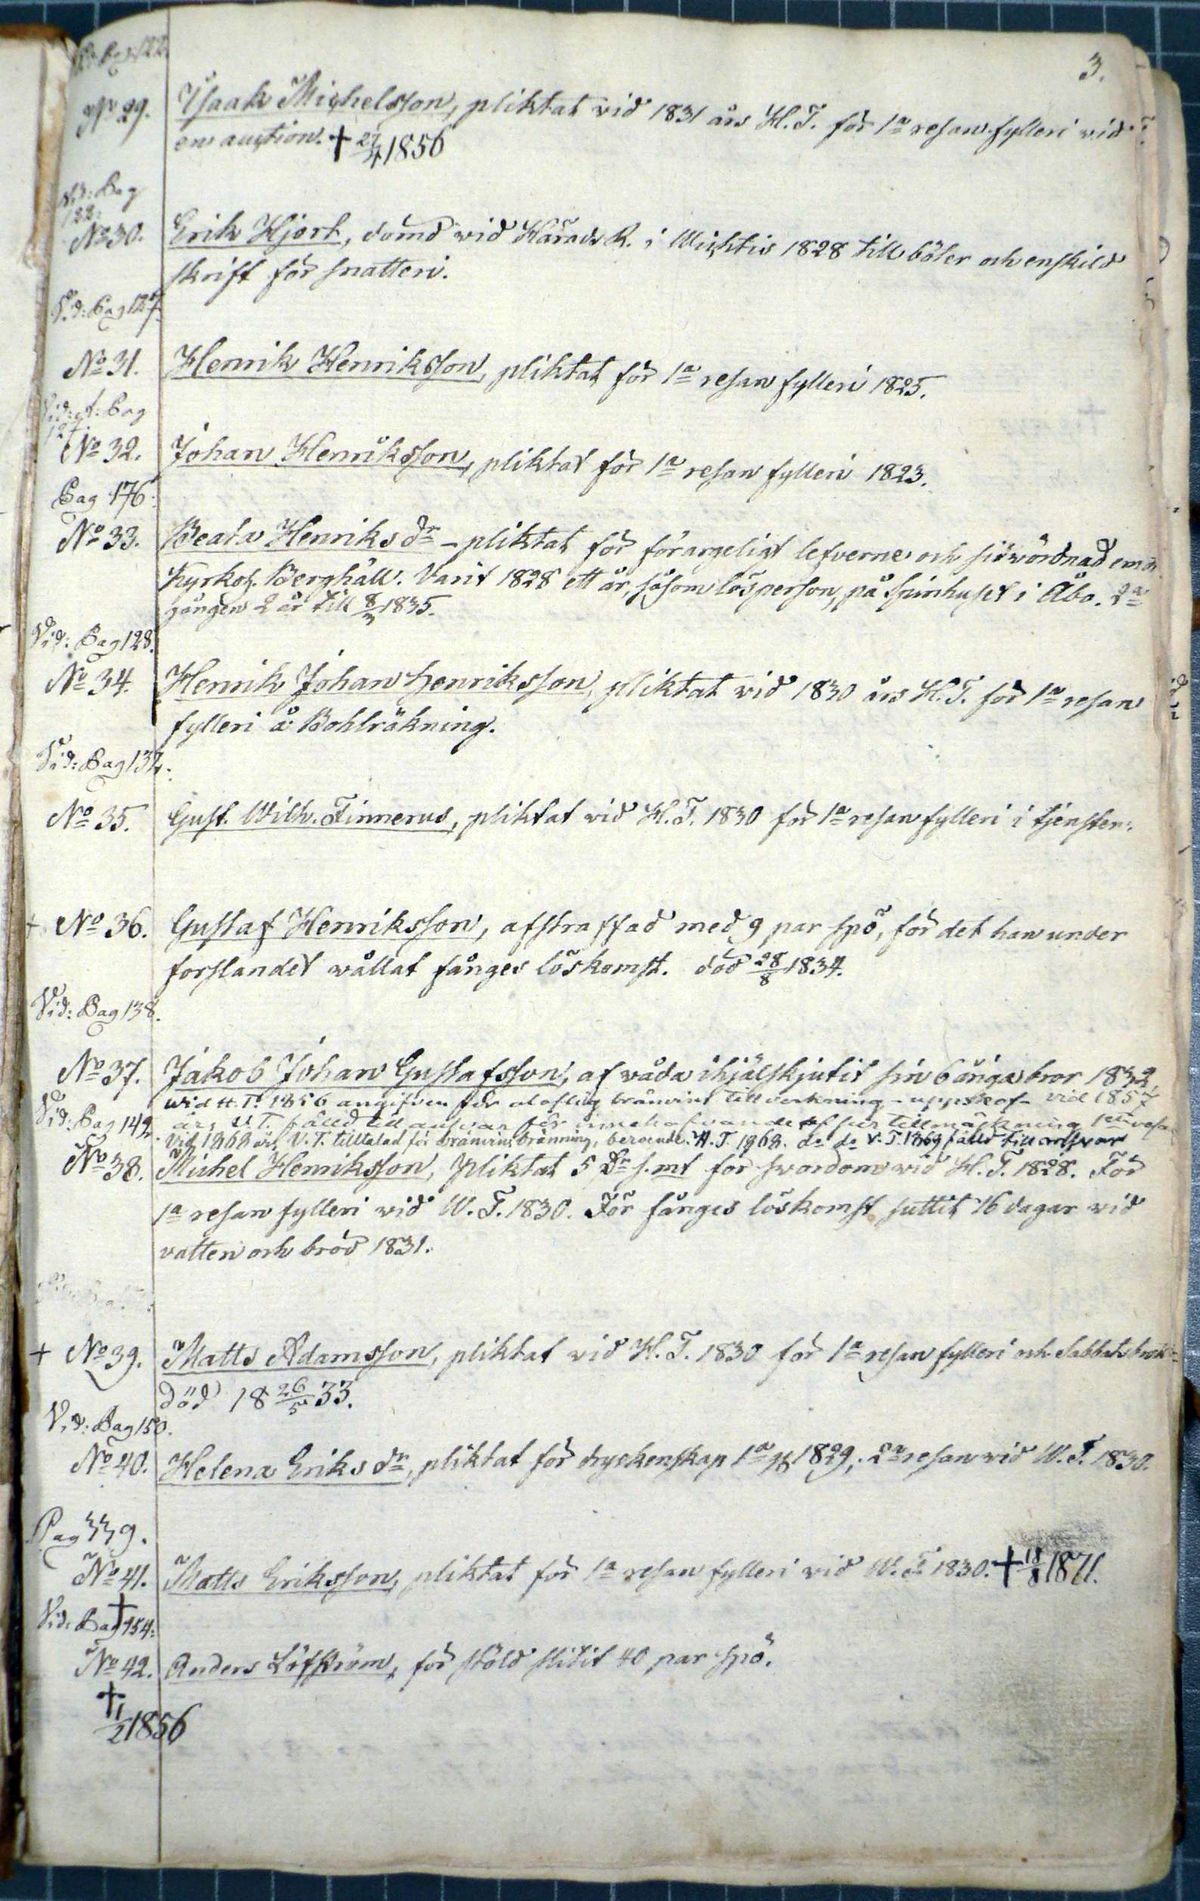 3.
Vid: Pag: 122.
No 29. Isaak Michelsson, pliktat vid 1831 års H.T. för 1a resan fylleri vid
en auction. † 27/4 1856
Vid: Pag
122:
No 30. Erik Hjort, dömd vid Härads R. i Wichtis 1828 till böter och enskild
skrift för snatteri.
Vid: Pag 127.
No 31. Henrik Henriksson, pliktat för 1a resan fylleri 1825.
Vid: Pag
127.
No 32. Johan Henriksson, pliktat för 1a resan fylleri 1823.
Pag 176.
No 33. Beata Henriksdr – pliktat för förargeligt lefverne och
Kyrkoh. Berghäll. Varit 1828 ett år, såsom lösperson, på spinhuset i Åbo. 2a
gången 2 år till 8/3 1835.
Vid: Pag 128.
No 34. Henrik Johan Henriksson, pliktat vid 1830 års H.T. för 1a resan
fylleri å Bohlräkning.
Vid: Pag 134.
No 35. Gust. Wilh. Finnerus, pliktat vid H.T. 1830 för 1a resan fylleri i tjensten.
+ No 36. Gustaf Henriksson, afstraffad med 9 par spö, för det han under
forslandet vållat fånges löskomst. död 28/8 1834.
Vid: Pag 138.
No 37. Jakob Johan Gustafsson, af våda ihjälskjutit sin 6 åriga bror 1832,
wid H.T. 1856 angifven för oloflig bränvins tillverkning – uppskof – vid 1857
Vid: Pag 142
års V.T. fälld till ansvar för
Vid 1868 års V.T. tilltalad för bränvinsbränning, beroende. H.T. 1868. do do V.T. 1869 fälld till ansvar
No 38. Michel Henriksson, Pliktat 5 Dr s.mt för svordom vid H.T. 1828. För
1a resan fylleri vid W.T. 1830. För fånges löskomst suttit 16 dagar vid
vatten och bröd 1831.
+ No 39. Matts Adamsson, pliktat vid H.T. 1830 för 1a resan fylleri och Sabbatsbrott
död 18 26/5 33.
Vid: Pag 150.
No 40. Helena Eriksdr, pliktat för dryckenskap 1a g. 1829; 2a resan vid W.T. 1830.
Pag 339.
No 41. Matts Eriksson, pliktat för 1a resan fylleri vid W.T. 1830. † 18/8 1871.
†
Vid: Pag 154:
No 42. Anders Löfström, för stöld slitit 40 par spö.
†
1/2 1856